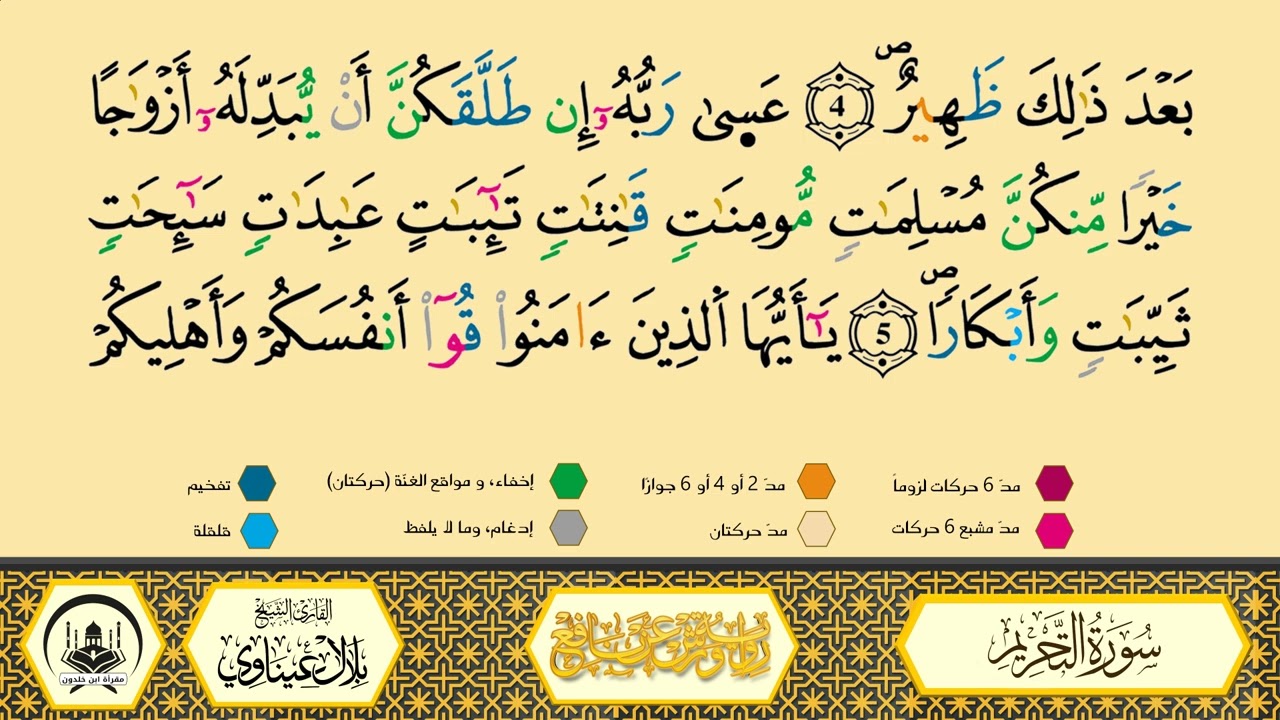 بَعْدَ ذَٰلِكَ ظَهِيرٌ ۖ 4 عَسۭىٰ رَبُّهُۥٓ إِن طَلَّقَكُنَّ أَنْ يُّبَدِّلَهُۥٓ أَزْوَٰجًا
خَيْرًا مِّنكُنَّ مُسْلِمَٰتٖ مُّومِنَٰتٖ قَٰنِتَٰتٖ تَٰٓئِبَٰتٍ عَٰبِدَٰتٖ سَٰٓئِحَٰتٖ
ثَيِّبَٰتٖ وَأَبْكَارًا ۖ 5 يَٰٓأَيُّهَا اَ۬لذِينَ ءَامَنُواْ قُوٓاْ أَنفُسَكُمْ وَأَهْلِيكُمْ
مدّ 6 حركات لزوماً
مدّ 2 أو 4 أو 6 جوازًا
إخفاء، و مواقع الغنّة (حركتان)
تفخيم
مدّ مشبع 6 حركات
مدّ حركتان
إدغام، وما لا يلفظ
قلقلة
سُورَةُ التَّحْرِيمِ
رواية ورش عن نافع
القارئ الشيخ
بلال عيناوي
مقرأة ابن خلدون